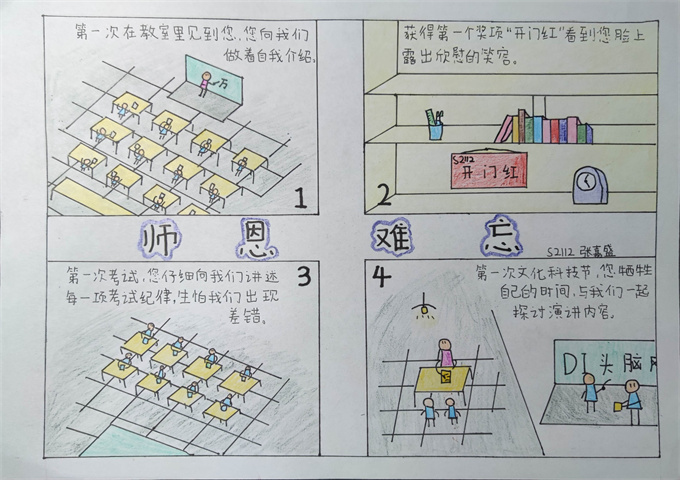 第一次在教室里见到您,您向我们
做着自我介绍。
万
1
获得第一个奖项“开门红”看到您脸上
露出欣慰的笑容。
S2112
开门红
2
师恩难忘
S2112 张嘉盛
第一次考试,您仔细向我们讲述
每一项考试纪律,生怕我们出现
差错。
3
4
第一次文化科技节,您牺牲
自己的时间,与我们一起
探讨演讲内容。
DI头脑